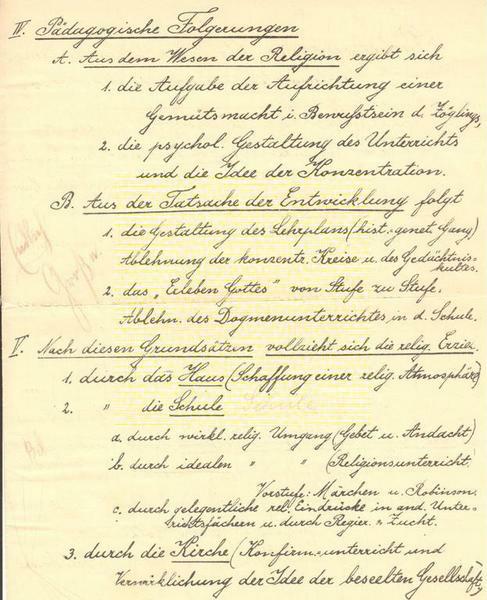 IV. Pädagogische Folgerungen
A. Aus dem Wesen der Religion ergibt sich
1. die Aufgabe der Aufrichtung einer
Gemütsmacht i. Bewußtsein d. Zöglings,
2. die psychol. Gestaltung des Unterrichts
und die Idee der Konzentration.
B. Aus der Tatsache der Entwicklung folgt
1. die Gestaltung des Lehrplans (hist.-genet. Gang)
Ablehnung der konzentr. Kreise u. des Gedächtnis-
kultes.
2. das „Erleben Gottes" von Stufe zu Stufe.
Ablehn. des Dogmenunterrichtes in d. Schule.
V. Nach diesen Grundsätzen vollzieht sich die relig. Erzie.
1. durch das Haus (Schaffung einer relig. Atmosphäre)
2. " die Schule Schule
a. durch wirkl. relig. Umgang (Gebet u. Andacht)
b. durch idealen " " (Religionsunterricht.
Vorstufe: Märchen u. Robinson.
c. durch gelegentliche rel. Eindrücke in and. Unter-
richtsfächern u. durch Regier. u. Zucht.
3. durch die Kirche (Konfirm.-unterricht und
Verwirklichung der Idee der beseelten Gesellschaft,